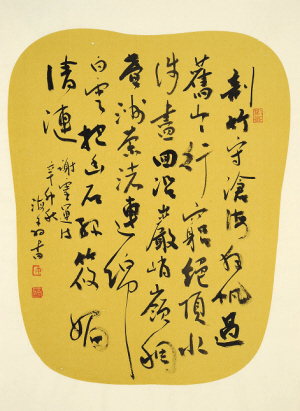 剖竹守滄海枉帆過
舊山々行窮絕頂水
涉盡洄沿巖峭嶺稠
疊洲縈渚連綿
白雲抱幽石綠筱媚
清漣
謝靈運詩
辛卯秋
書